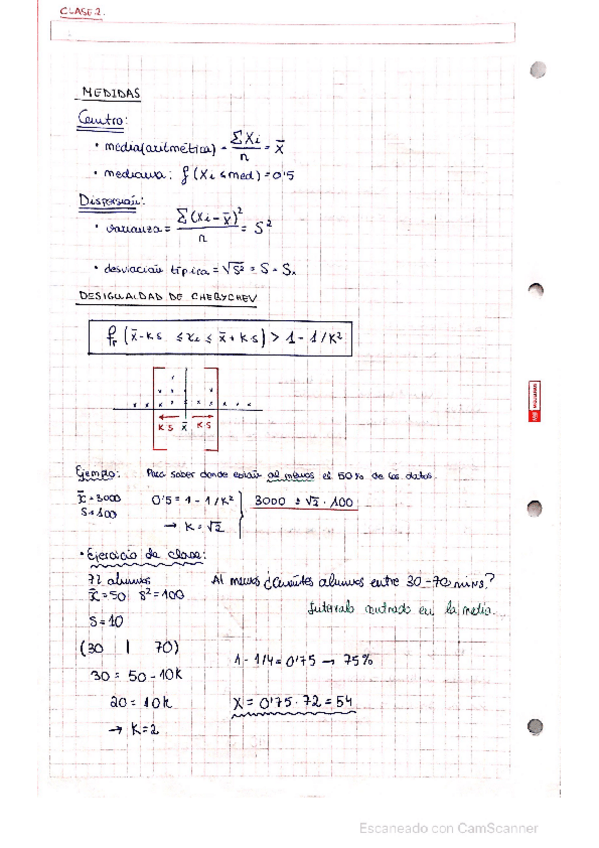 CLASE 2.
MEDIDAS
Centro:
• media (aritmética) = ΣXi / n = x̄
• mediana: f(Xi ≤ med) = 0'5
Dispersión:
• varianza = Σ(Xi - x̄)² / n = S²
• desviación típica = √S² = S = Sx
DESIGUALDAD DE CHEBYCHEV
fr (x̄ - KS ≤ xi ≤ x̄ + KS) > 1 - 1/K²
KS x̄ KS
Ejemplo: Para saber donde están al menos el 50% de los datos.
x̄ = 3000 0'5 = 1 - 1/K² 3000 ± √2 · 100
S = 100 → K = √2
• Ejercicio de clase:
72 alumnos Al menos ¿cuántos alumnos entre 30-70 mins.?
x̄ = 50 S² = 100 Intervalo centrado en la media.
S = 10
(30 | 70) 1 - 1/4 = 0'75 → 75%
30 = 50 - 10K
20 = 10K X = 0'75 · 72 = 54
→ K = 2
Escaneado con CamScanner